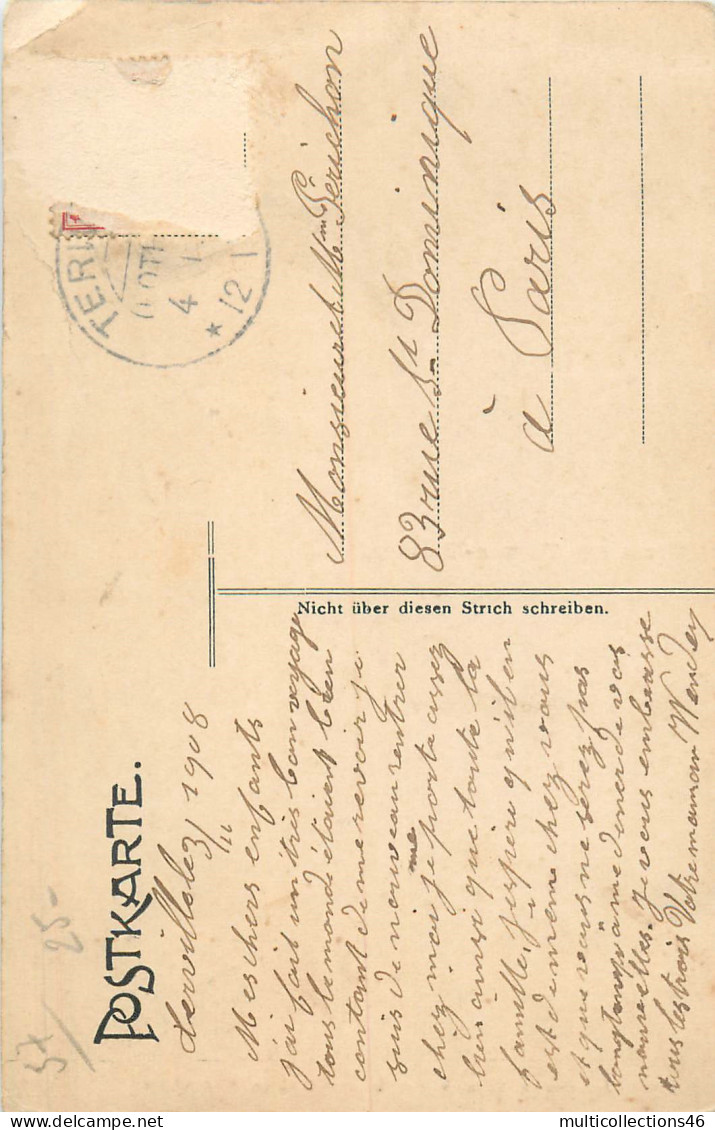 POSTKARTE.
Terville le 3/11 1908
Mes chers enfants
j'ai fait un tris bon voyage
tous le monde étaient bien
contant de me revoir je
suis de nouveau rentrer
chez moi je me porte assez
bien ainsi que toute la
famille, j'espère qu'il en
est de meme chez vous
et que vous ne serez pas
longtemps à me donner de vos
nouvelles. Je vous embrasse
tous les trois Votre maman
Nicht über diesen Strich schreiben.
Monsieur et Mme Périchon
83 rue St Dominique
à Paris
TER
(LOTH
4 1
* 12 1
57/ 25-
multicollections46